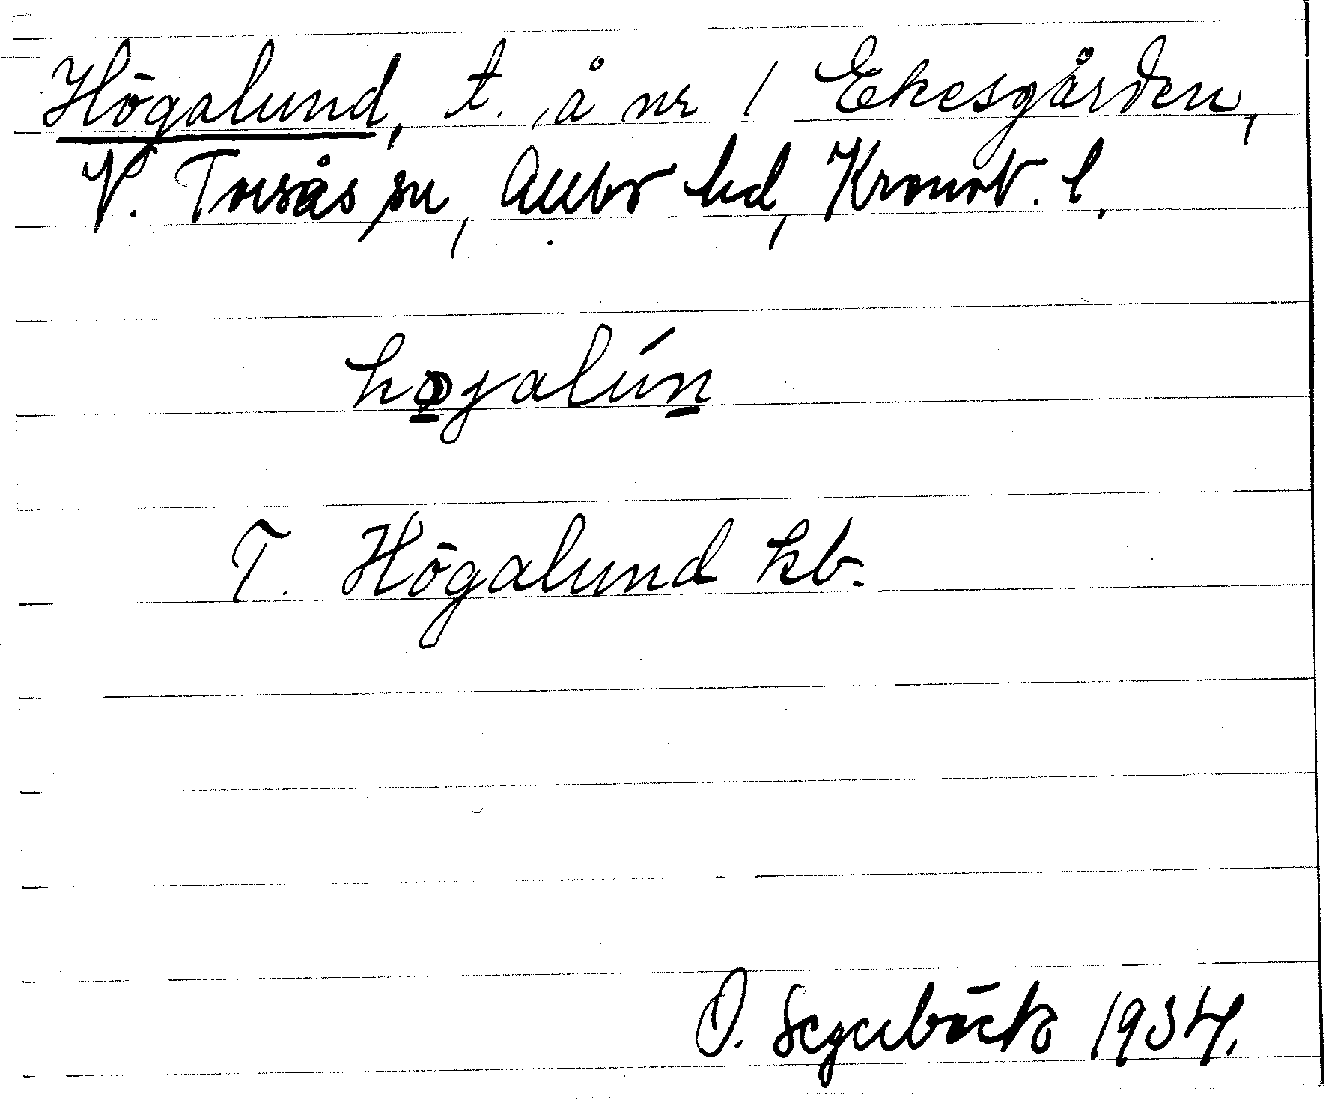 Högalund, t. å nr 1 Ekesgården,
V. Torsås sn, Allbo hd, Kronob. l.
høgalún
T. Högalund kb.
O. Segerbäck 1934.